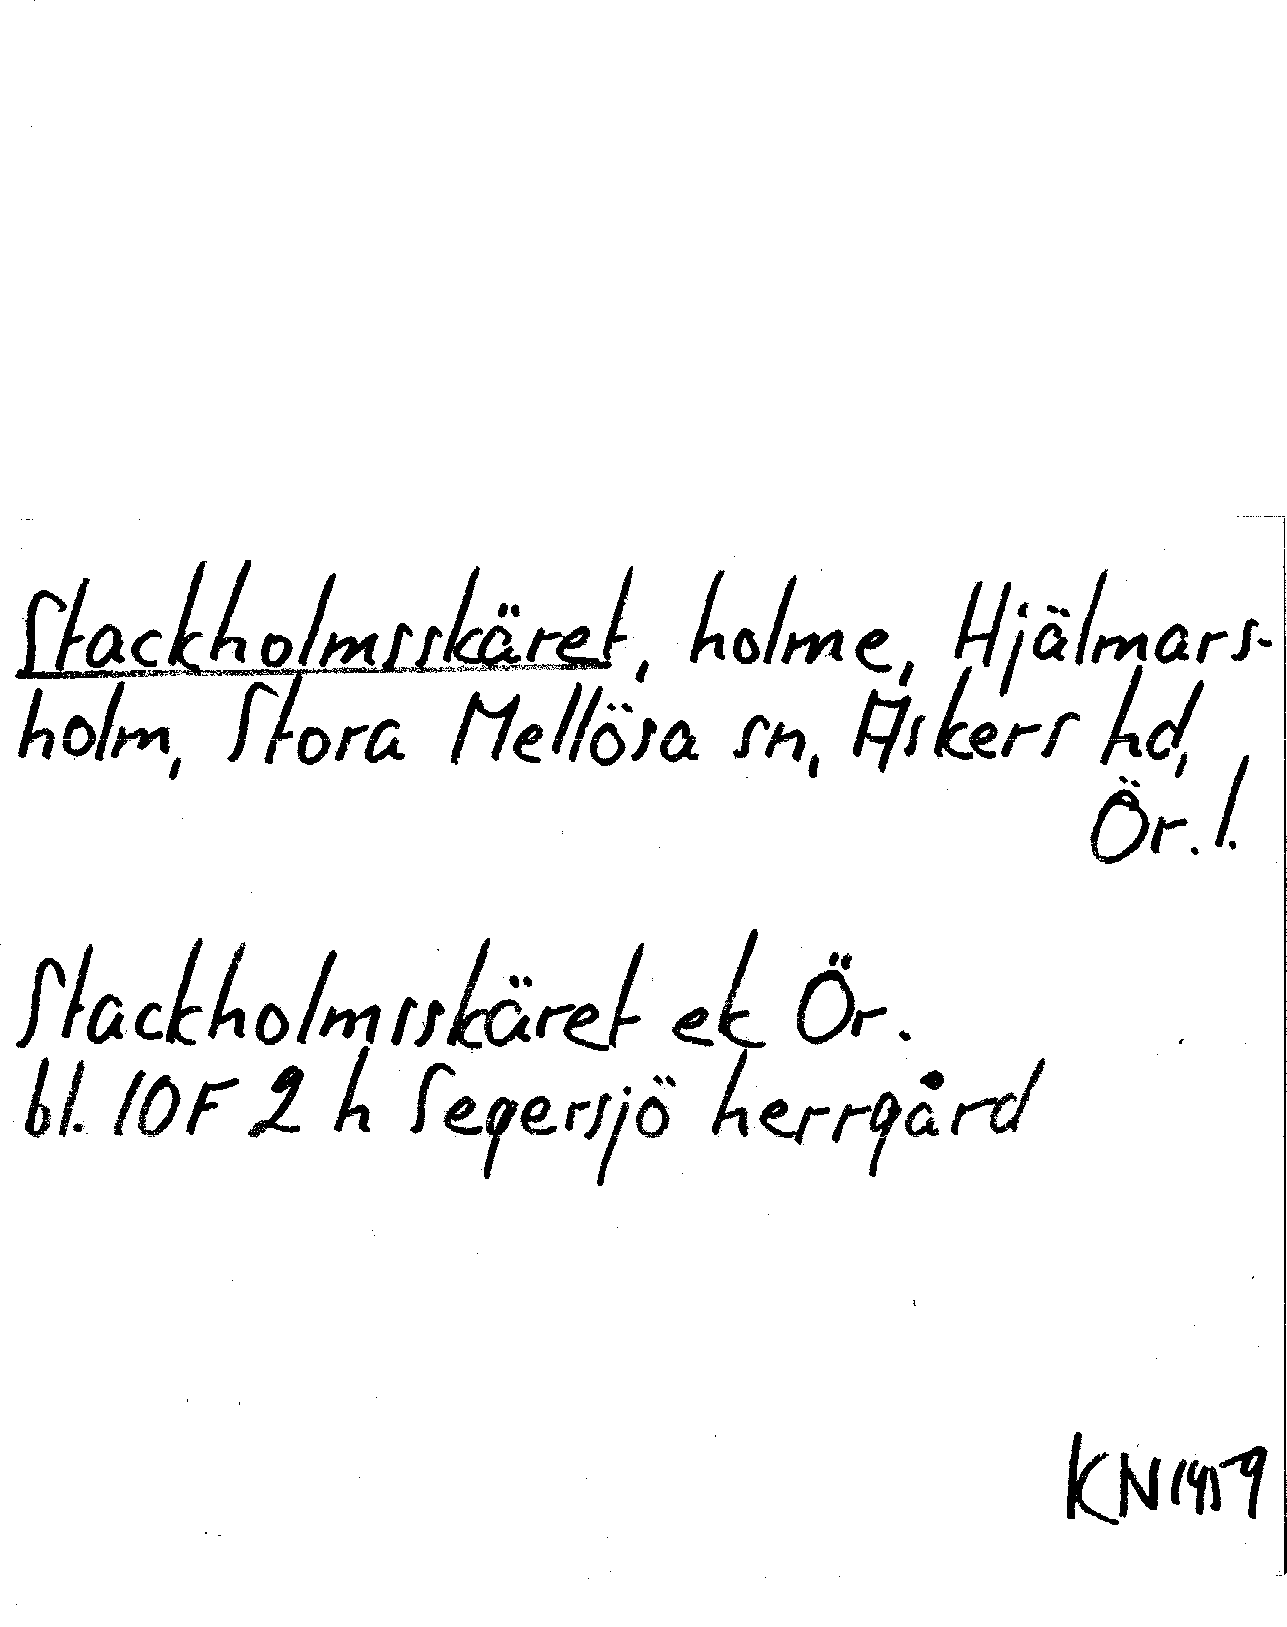 Stackholmsskäret, holme, Hjälmars-
holm, Stora Mellösa sn, Askers hd,
Ör. l.
Stackholmsskäret ek Ör.
bl. 10F 2 h Segersjö herrgård
KN 1959